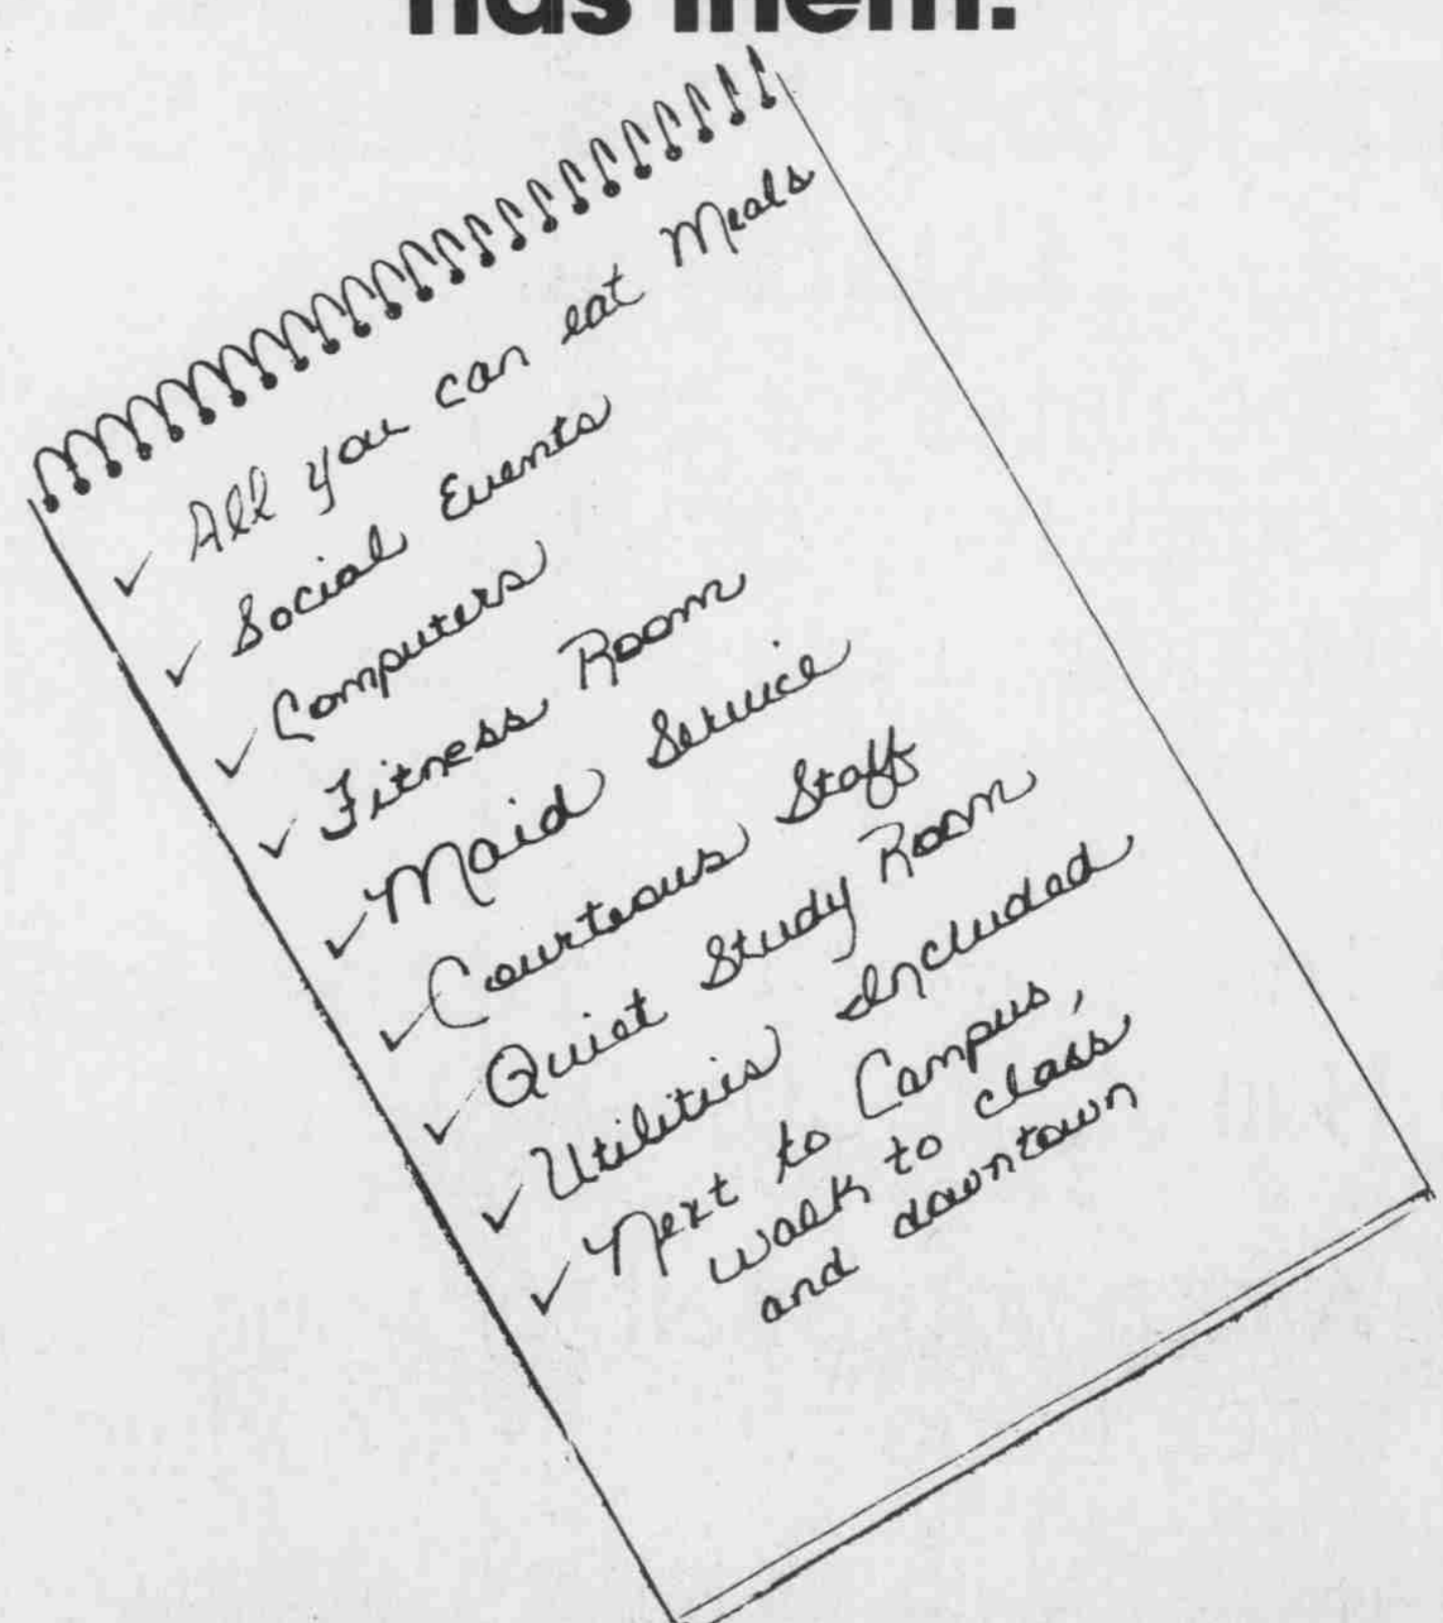 has them.
✓ All you can eat Meals
✓ Social Events
✓ Computers
✓ Fitness Room
✓ Maid Service
✓ Courteous Staff
✓ Quiet Study Room
✓ Utilities Included
✓ Next to Campus,
walk to class
and downtown